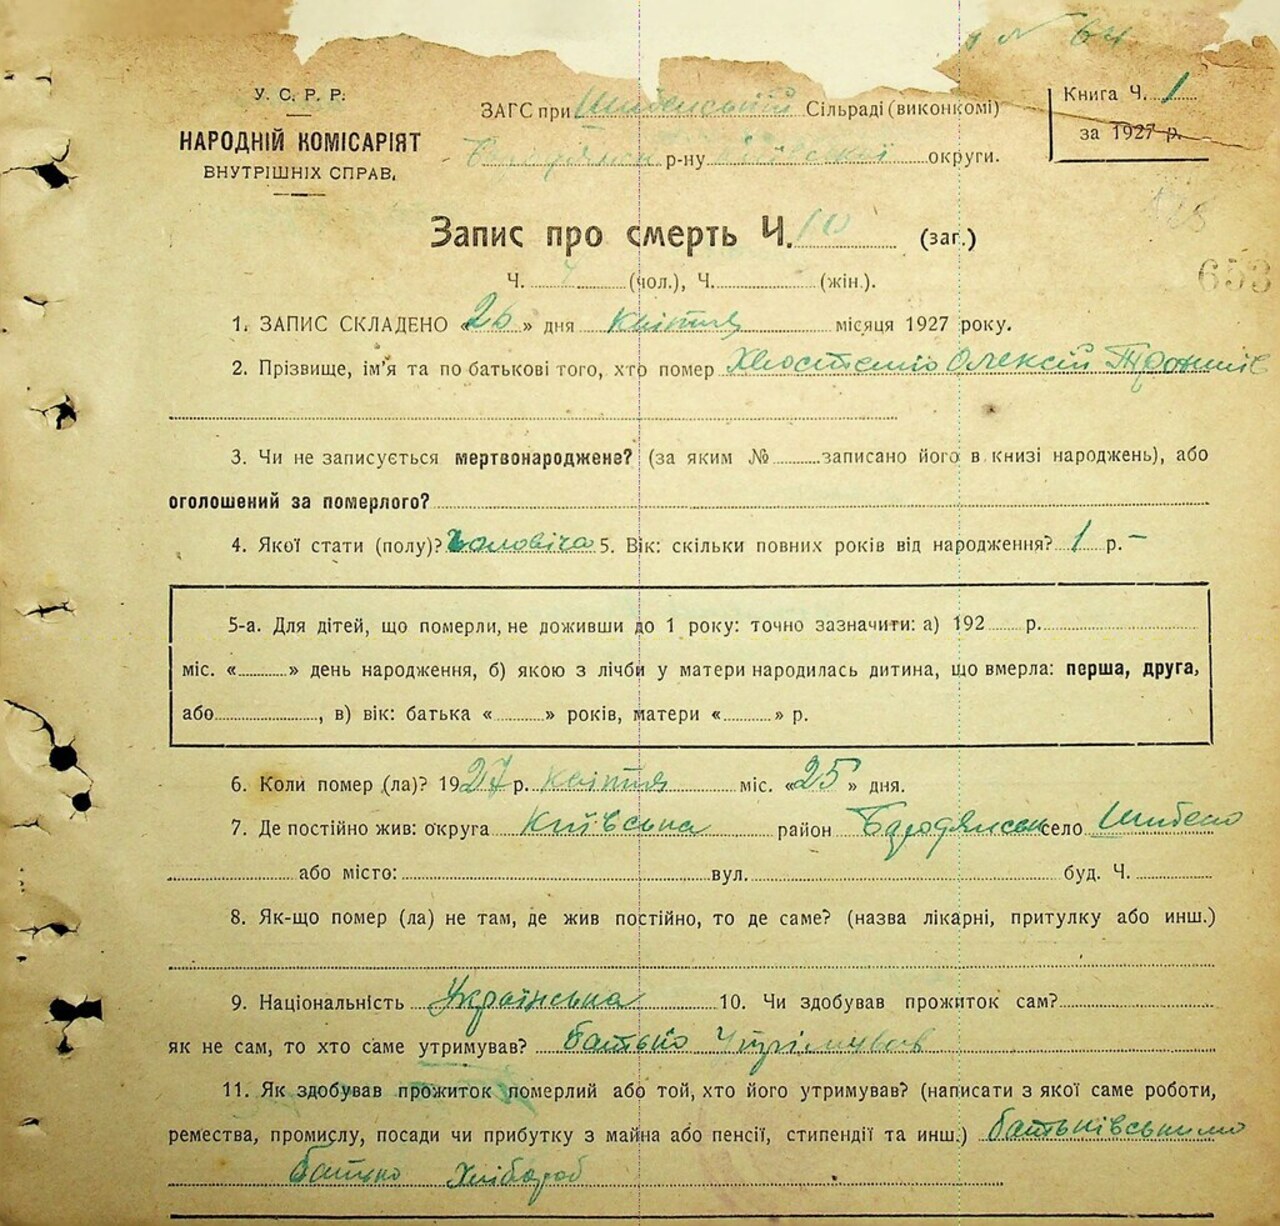 № 64
У. С. Р. Р.
НАРОДНІЙ КОМІСАРІЯТ
ВНУТРІШНІХ СПРАВ.
ЗАГС при Шибенській Сільраді (виконкомі)
р-ну Київської округи.
Книга Ч. 1
за 1927 р.
653
Запис про смерть Ч. 10 (заг.)
Ч. 7 (чол.), Ч. (жін.).
1. ЗАПИС СКЛАДЕНО «26» дня квітня місяця 1927 року.
2. Прізвище, ім'я та по батькові того, хто помер Олексій
3. Чи не записується мертвонароджене? (за яким № записано його в книзі народжень), або
оголошений за померлого?
4. Якої стати (полу)? Чоловіча 5. Вік: скільки повних років від народження? 1 р. –
5-а. Для дітей, що померли, не доживши до 1 року: точно зазначити: а) 192 р.
міс. « » день народження, б) якою з лічби у матери народилась дитина, що вмерла: перша, друга,
або , в) вік: батька « » років, матери « » р.
6. Коли помер (ла)? 1927 р. квітня міс. «25» дня.
7. Де постійно жив: округа Київська район Бародянськ село Шибено
або місто: вул. буд. Ч.
8. Як-що помер (ла) не там, де жив постійно, то де саме? (назва лікарні, притулку або инш.)
9. Національність Українська 10. Чи здобував прожиток сам?
як не сам, то хто саме утримував? батько Утрімував
11. Як здобував прожиток померлий або той, хто його утримував? (написати з якої саме роботи,
ремества, промислу, посади чи прибутку з майна або пенсії, стипендії та инш.) батьківськими
батько Хлібороб